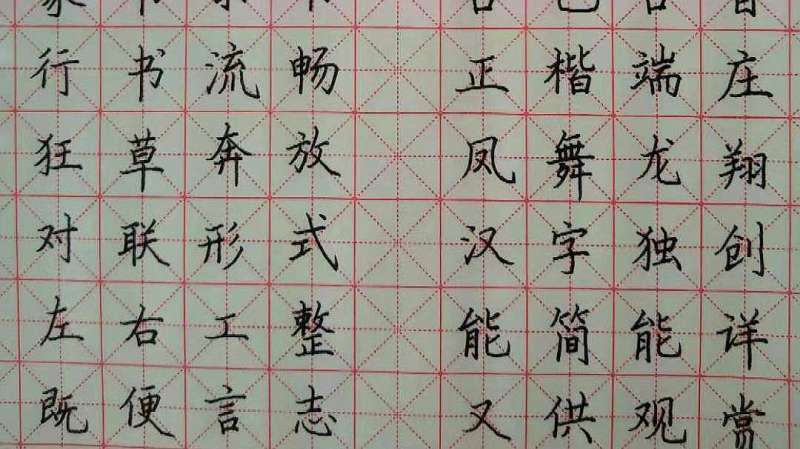 行书流畅 正楷端庄
狂草奔放 凤舞龙翔
对联形式 汉字独创
左右工整 能简能详
既便言志 又供观赏